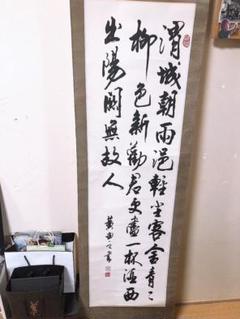 渭城朝雨浥輕尘客舍青〻
柳色新勸君更盡一杯酒西
出陽關無故人